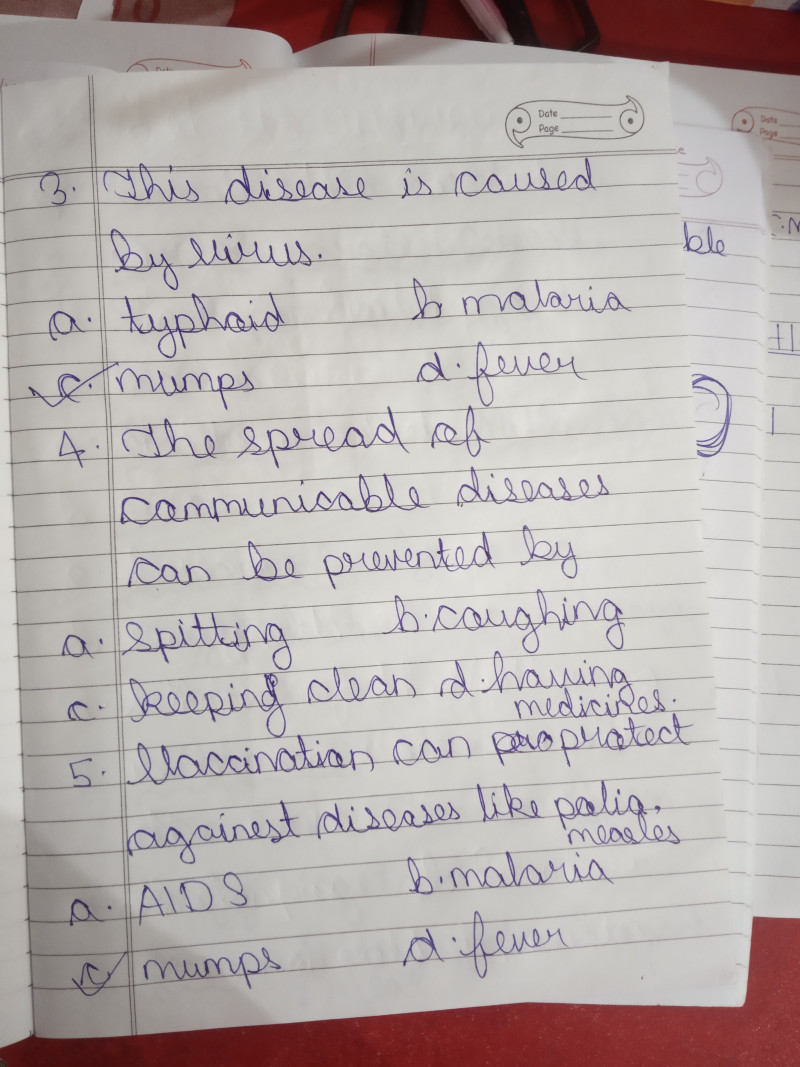 Date
Page
3. This disease is caused
by virus.
a. typhoid b malaria
c. mumps d. fever
4. The spread of
communicable diseases
can be prevented by
a. spitting b. coughing
c. keeping clean d. having
medicines.
5. Vaccination can protect
againest diseases like polio,
measles
a. AIDS b. malaria
c mumps d. fever
ble
Date
Page